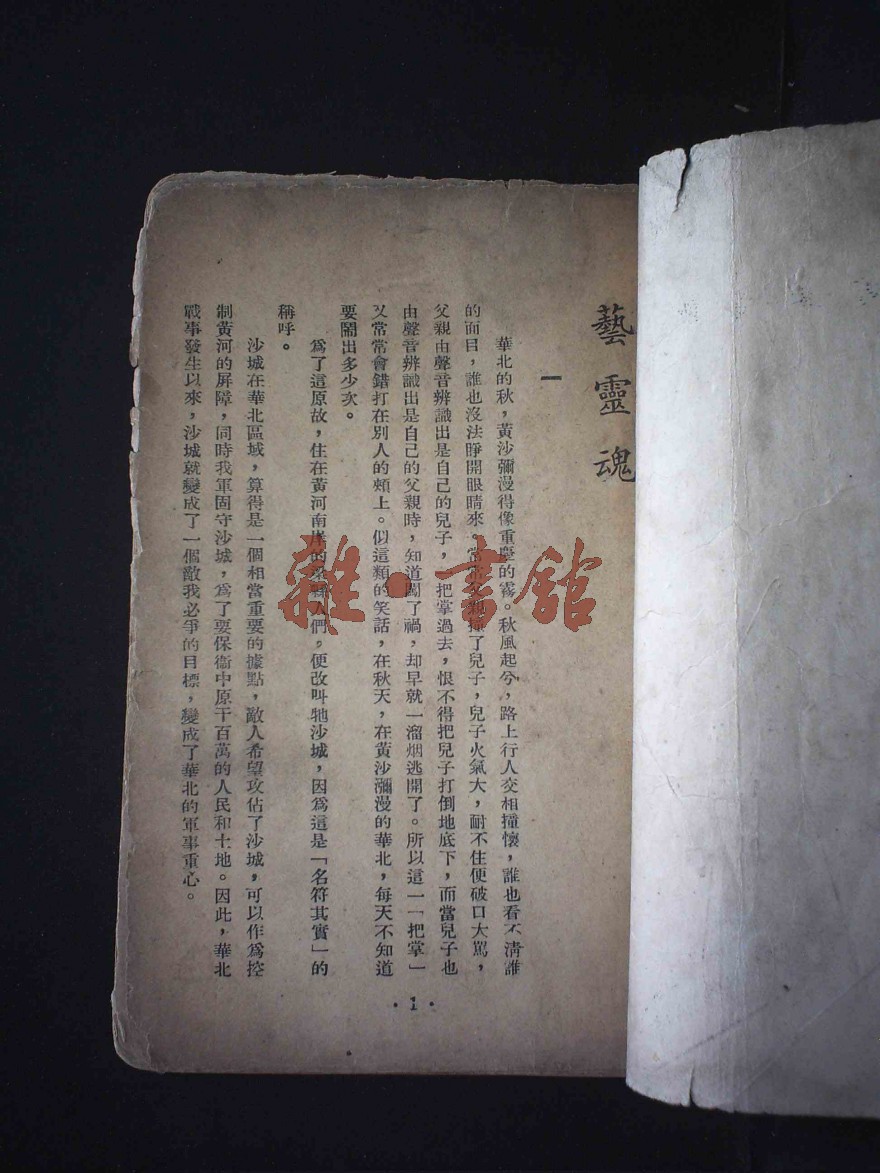 藝靈魂
一
華北的秋，黃沙彌漫得像重慶的霧。秋風起兮，路上行人交相撞懷，誰也看不清誰
的面目，誰也沒法睜開眼睛來。常常父親撞了兒子，兒子火氣大，耐不住便破口大罵，
父親由聲音辨識出是自己的兒子，一把掌過去，恨不得把兒子打倒地底下，而當兒子也
由聲音辨識出是自己的父親時，知道闖了禍，却早就一溜烟逃開了。所以這一「把掌」
又常常會錯打在別人的頰上。似這類的笑話，在秋天，在黃沙瀰漫的華北，每天不知道
要鬧出多少次。
爲了這原故，住在黃河南岸的縣人們，便改叫牠沙城，因爲這是「名符其實」的
稱呼。
沙城在華北區域，算得是一個相當重要的據點，敵人希望攻佔了沙城，可以作爲控
制黃河的屏障，同時我軍固守沙城，爲了要保衞中原千百萬的人民和土地。因此，華北
戰事發生以來，沙城就變成了一個敵我必爭的目標，變成了華北的軍事重心。
·1·
雜·書館